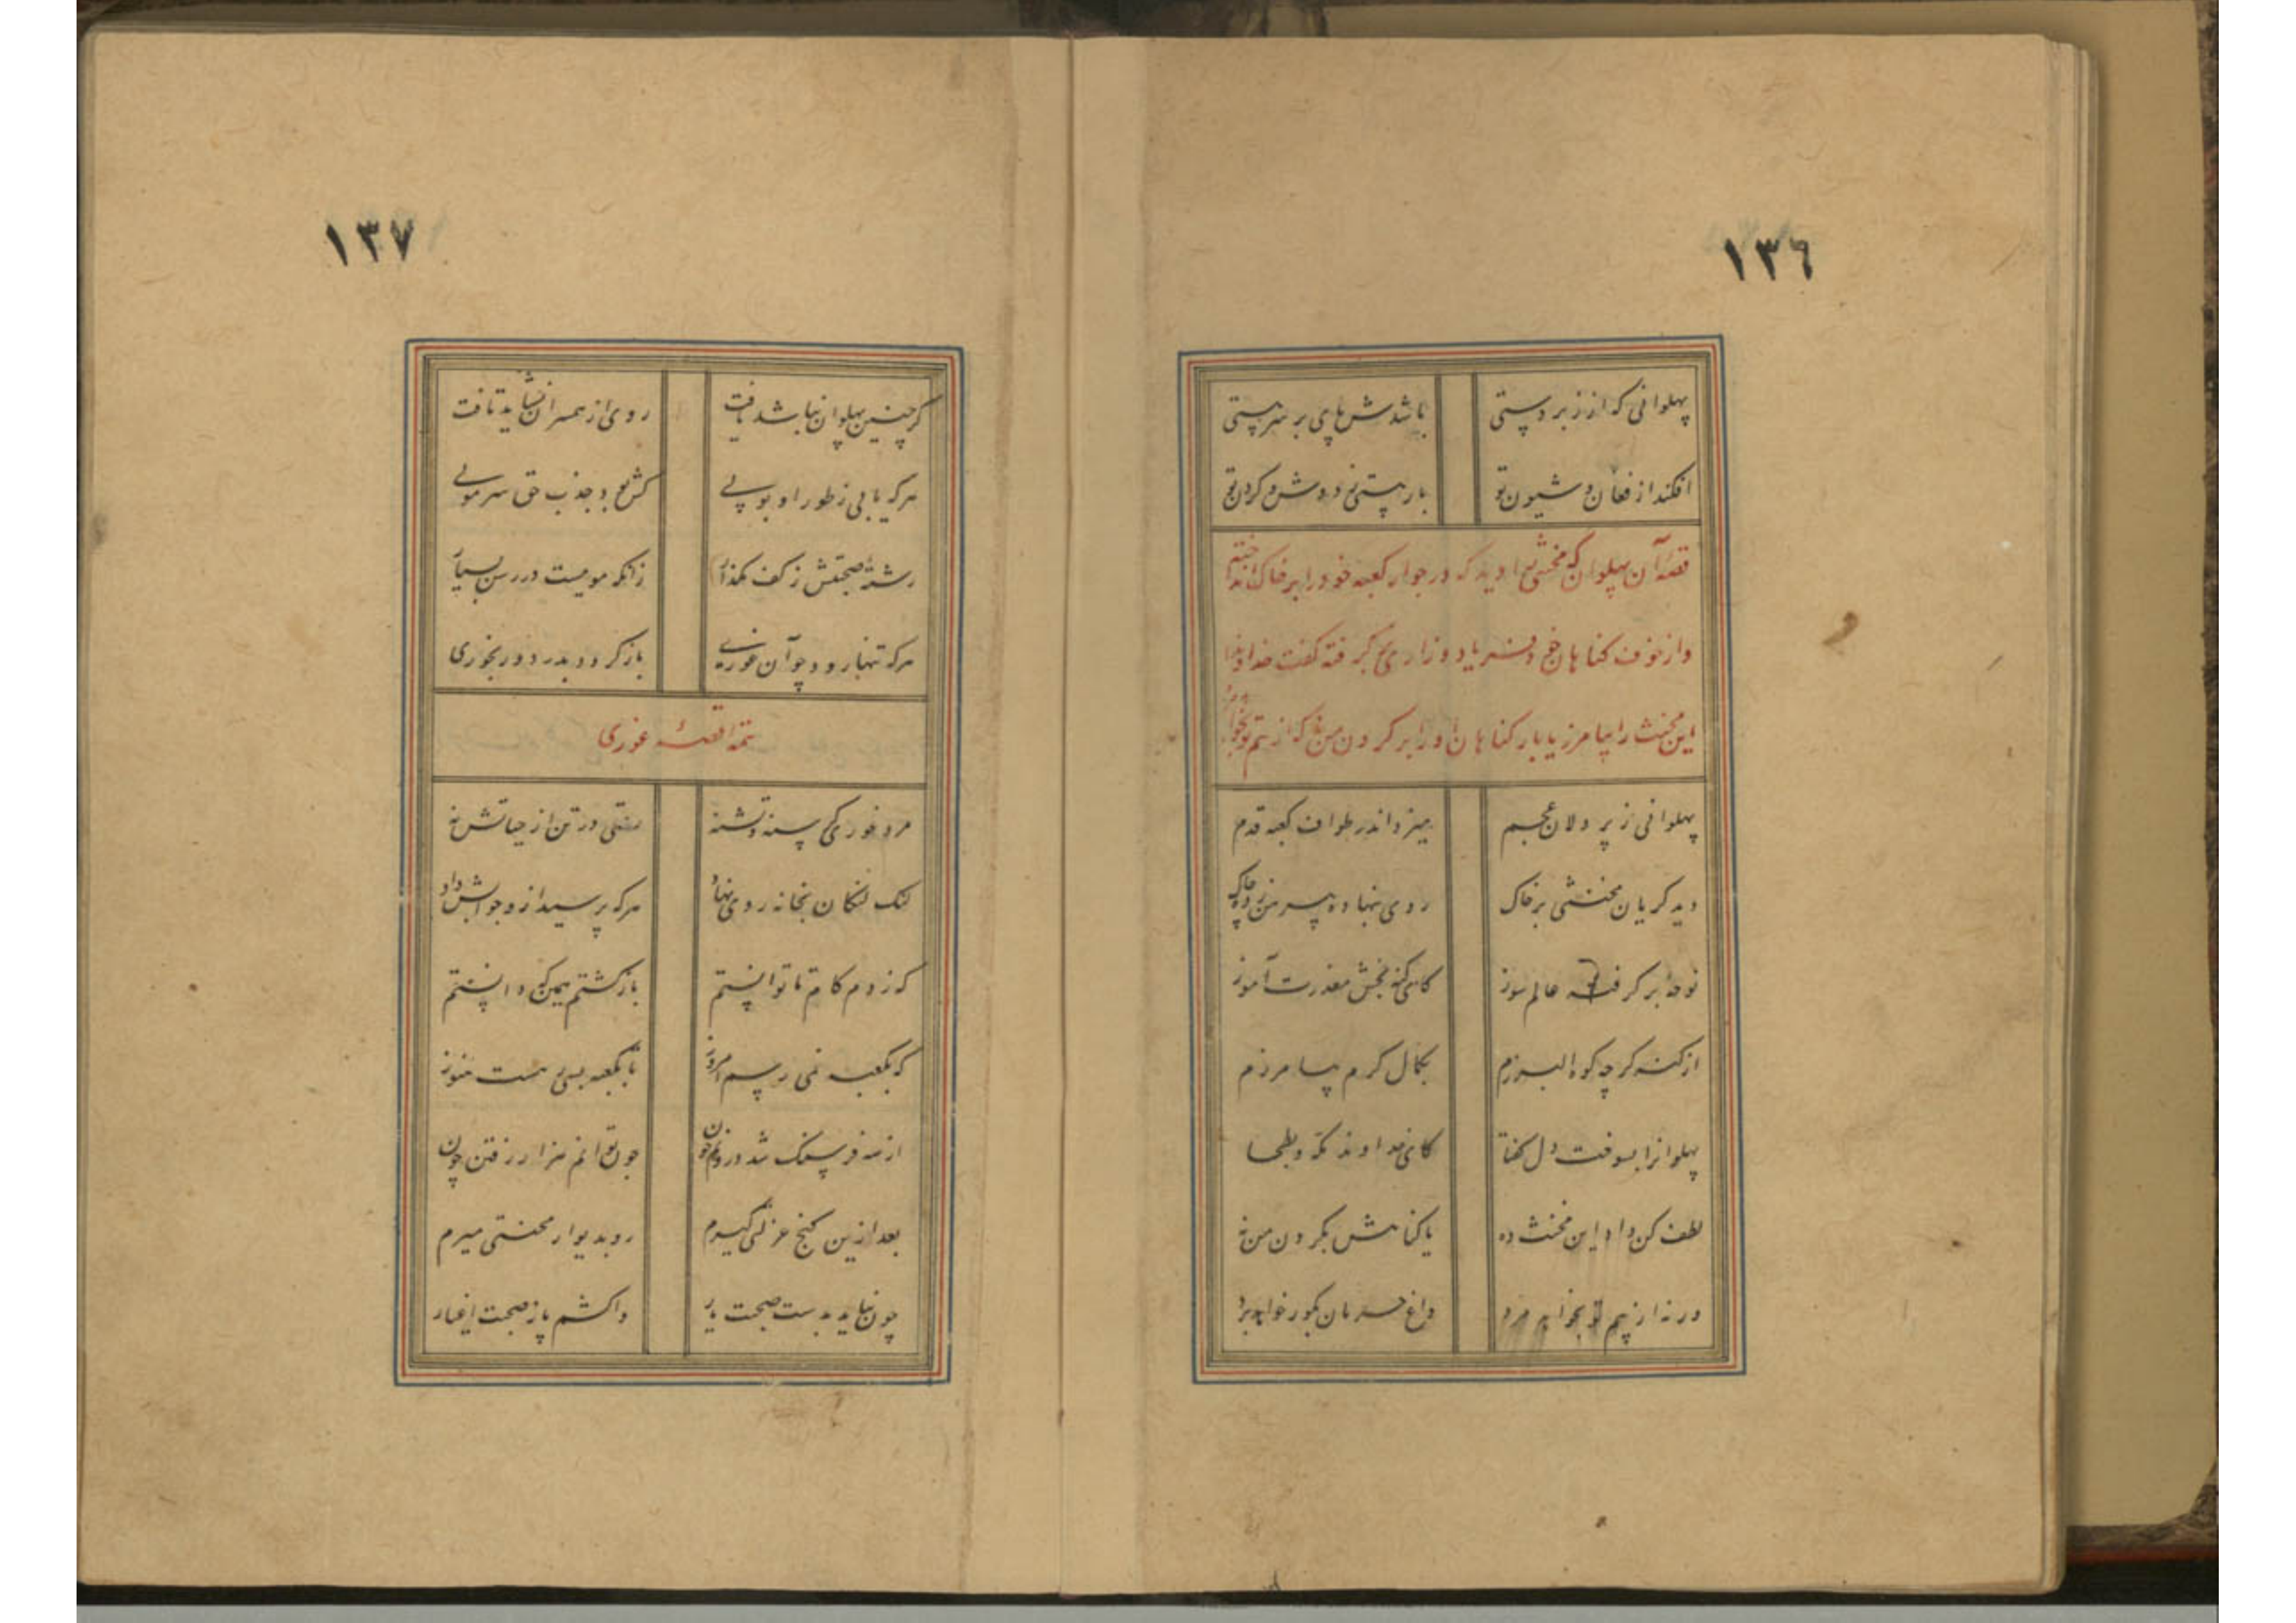 ١٣٦
پهلوانی که از زبردستی باشدش پای بر سر پستی
افکند از فغان و شیون تو بار پستی ز دوش و کردن تو
قصهٔ آن پهلوان که مخنثی را دید که در جوار کعبه خود را بر خاک انداخته
و از خوف کناهان خود فریاد و زاری بر کرفته گفت خداوندا
این مخنث را بیامرز یا بار کناهان او را بر کردن من نه که از بیم تو بخواهد مرد
پهلوانی ز پر دلان عجم میزد اندر طواف کعبه قدم
دید کریان مخنثی بر خاک روی بنهاده پیرهن زده چاک
نوحهٔ بر کرفته عالم سوز کای کنه بخش معذرت آموز
از کنه کرچه کوه البرزم بکمال کرم بیامرزم
پهلوانرا بسوخت دل کفتا کای خداوند مکه و بطحا
لطف کن داد این مخنث ده یا کناهش بکردن من نه
ورنه از بیم تو بخواهد مرد داغ حرمان بکور خواهد برد
١٣٧
کر چنین پهلوان نباشد یافت روی از همسران نشاید تافت
هر که یابی ز طور او بویی کش بود جذب حق سر مویی
رشتهٔ صحبتش ز کف مکذار زانکه موییست در رسن بسیار
هر که تنها رود چو آن غوری باز کردد بدرد و رنجوری
تتمه قصهٔ غوری
مرد غوری کرسنه و تشنه رمقی در تن از حیاتش نه
لنک لنکان بخانه روی نهاد هر که پرسید ازو جوابش داد
که زدم کام تا توانستم باز کشتم چو ممکن دانستم
که بکعبه نمی رسم امروز تا بکعبه بسی هست هنوز
از سه فرسنک شد درونم خون چون توانم هزار رفتن چون
بعد ازین کنج عزلتی کیرم رو بدیوار محنتی میرم
چون نیاید بدست صحبت یار واکشم پا ز صحبت اغیار